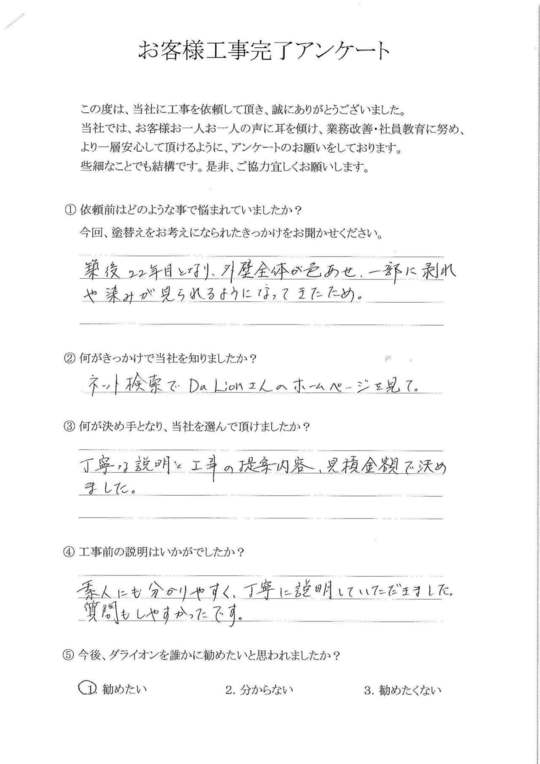 お客様工事完了アンケート
この度は、当社に工事を依頼して頂き、誠にありがとうございました。
当社では、お客様お一人お一人の声に耳を傾け、業務改善・社員教育に努め、
より一層安心して頂けるように、アンケートのお願いをしております。
些細なことでも結構です。是非、ご協力宜しくお願いします。
① 依頼前はどのような事で悩まれていましたか?
今回、塗替えをお考えになられたきっかけをお聞かせください。
築後22年目となり、外壁全体が色あせ、一部に剥れ
や染みが見られるようになってきたため。
② 何がきっかけで当社を知りましたか?
ネット検索で Da Lionさんのホームページを見て。
③ 何が決め手となり、当社を選んで頂けましたか?
丁寧な説明と工事の提案内容、見積金額で決め
ました。
④ 工事前の説明はいかがでしたか?
素人にも分かりやすく、丁寧に説明していただきました。
質問もしやすかったです。
⑤ 今後、ダライオンを誰かに勧めたいと思われましたか?
1. 勧めたい 2. 分からない 3. 勧めたくない